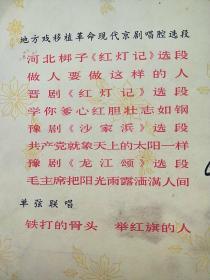 地方戏移植革命现代京剧唱腔选段
河北梆子《红灯记》选段
做人要做这样的人
晋剧《红灯记》选段
学你爹心红胆壮志如钢
豫剧《沙家浜》选段
共产党就象天上的太阳一样
豫剧《龙江颂》选段
毛主席把阳光雨露洒满人间
单弦联唱
铁打的骨头 举红旗的人